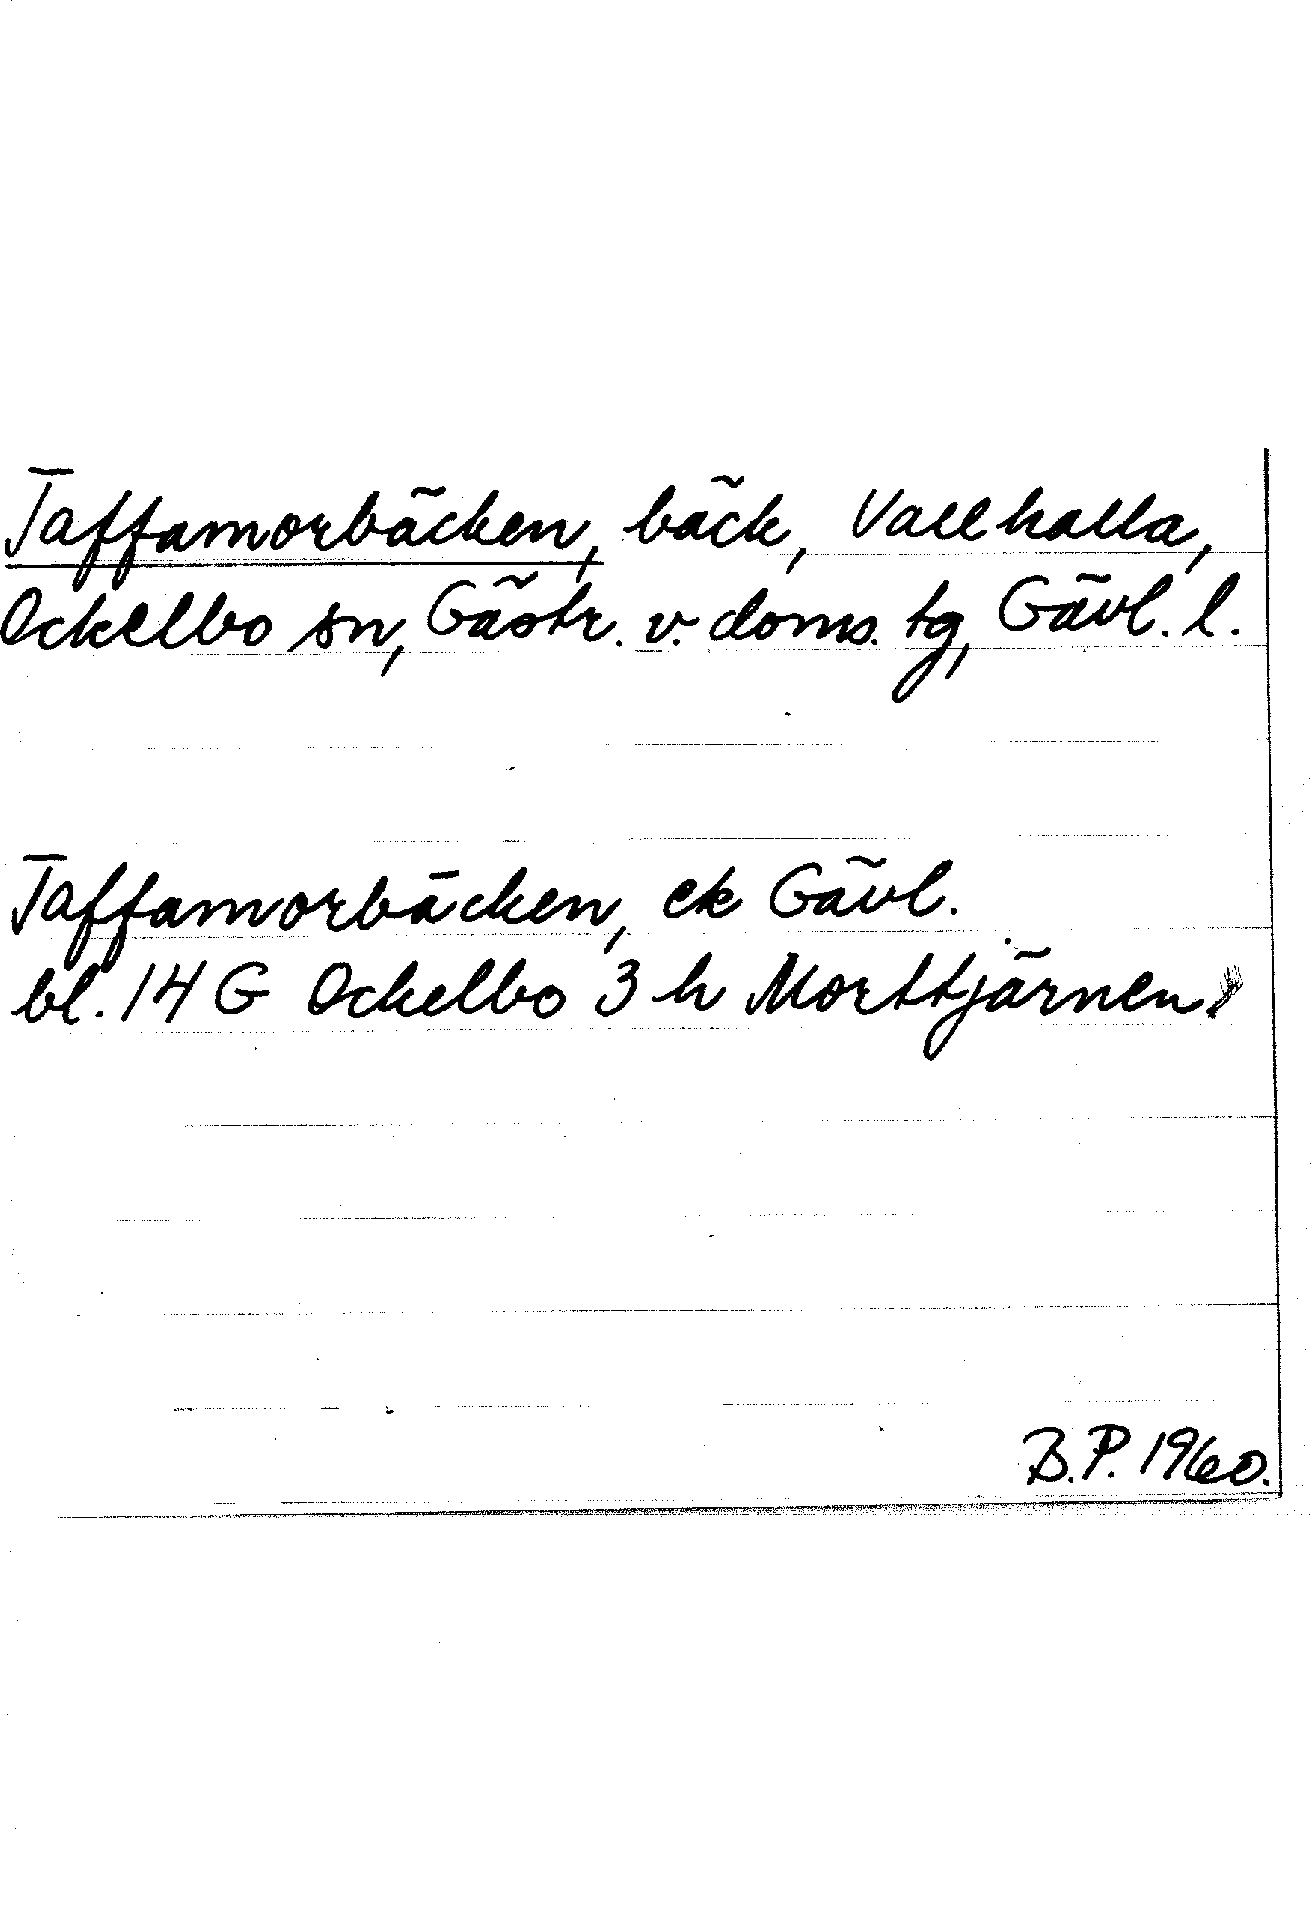 Taffamorbäcken, bäck, Vallhalla,
Ockelbo sn, Gästr. v. doms. tg, Gävl. l.
Taffamorbäcken, ek Gävl.
bl. 14 G Ockelbo 3 h Morttjärnen.
B.P. 1960.